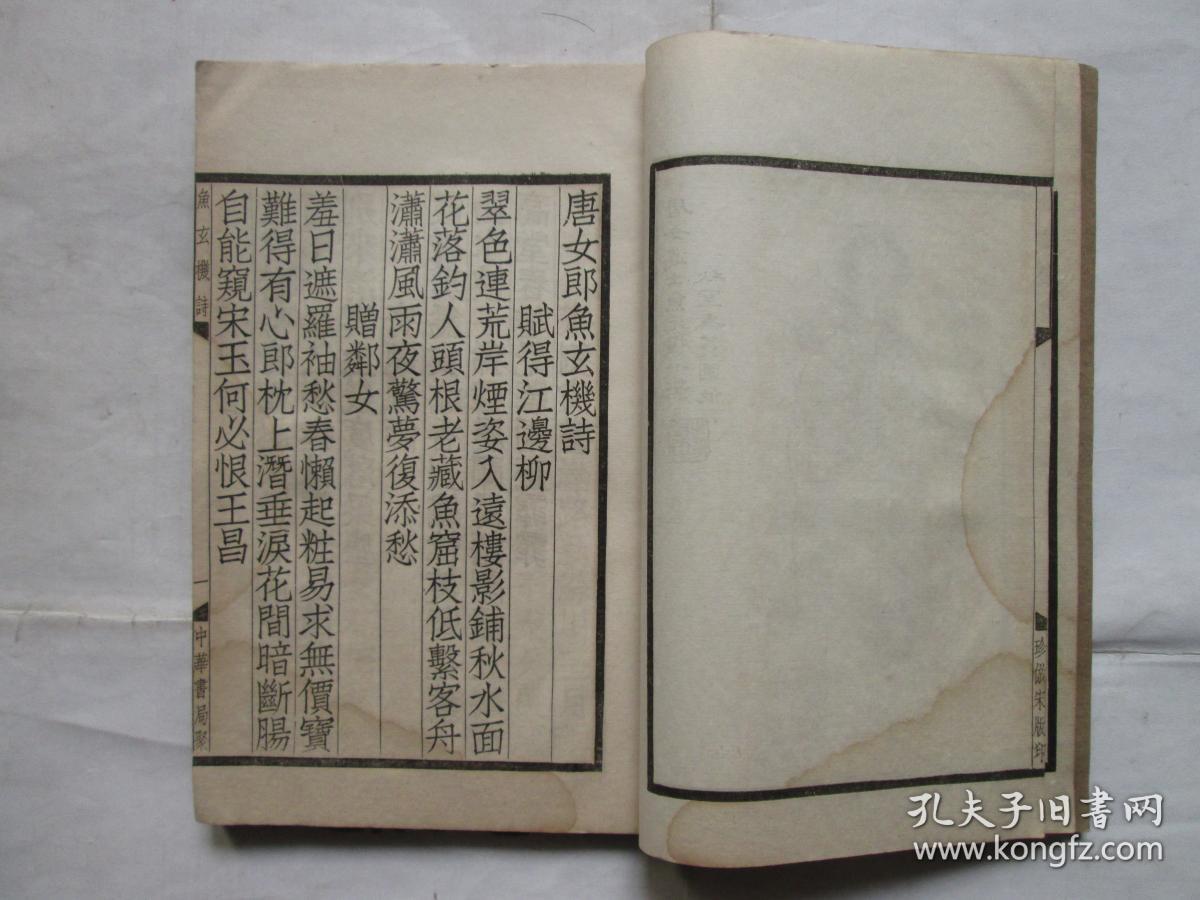 唐女郎魚玄機詩
賦得江邊柳
翠色連荒岸煙姿入遠樓影鋪秋水面
花落釣人頭根老藏魚窟枝低繫客舟
瀟瀟風雨夜驚夢復添愁
贈鄰女
羞日遮羅袖愁春懶起粧易求無價寶
難得有心郎枕上潛垂淚花間暗斷腸
自能窺宋玉何必恨王昌
魚玄機詩
一
中華書局聚
珍倣宋版印
孔夫子旧书网
www.kongfz.com